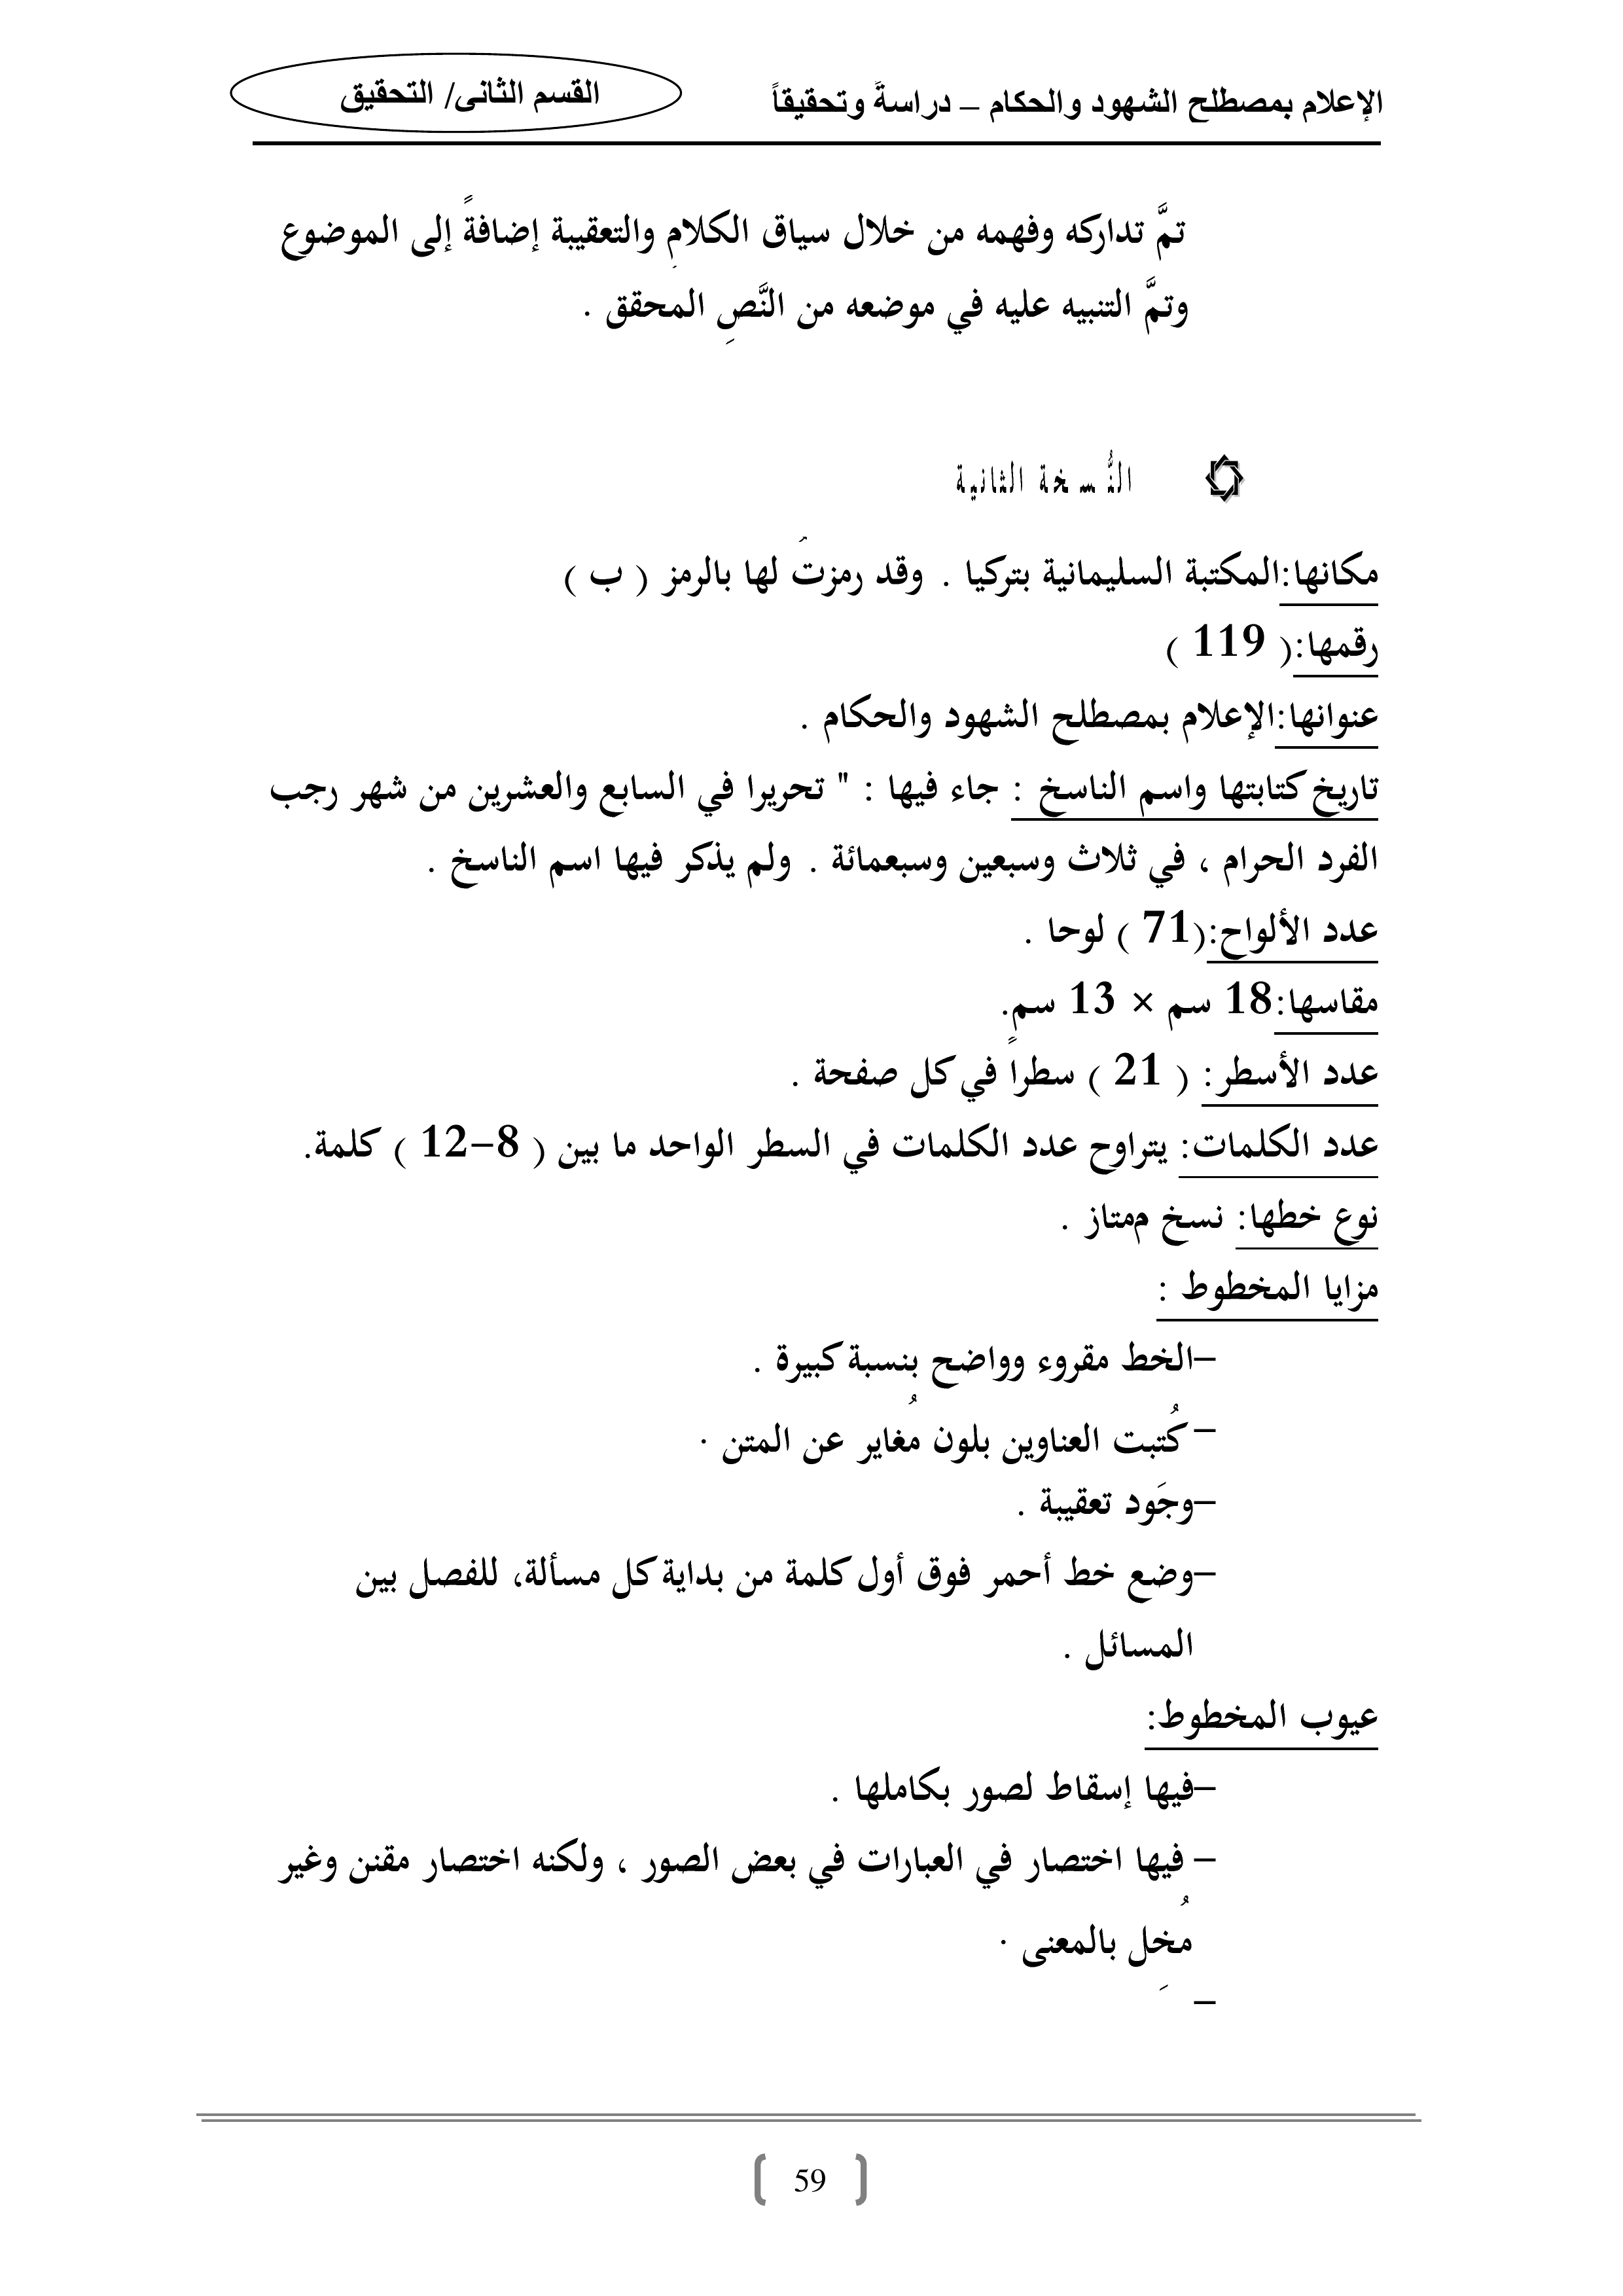 الإعلام بمصطلح الشهود والحكام – دراسةً وتحقيقاً
القسم الثانى/ التحقيق
تمَّ تداركه وفهمه من خلال سياق الكلامِ والتعقيبة إضافةً إلى الموضوع
وتمَّ التنبيه عليه في موضعه من النَّصِ المحقق .
النُّسخة الثانية
مكانها:المكتبة السليمانية بتركيا . وقد رمزتُ لها بالرمز ( ب )
رقمها:( 119 )
عنوانها:الإعلام بمصطلح الشهود والحكام .
تاريخ كتابتها واسم الناسخ : جاء فيها : " تحريرا في السابع والعشرين من شهر رجب
الفرد الحرام ، في ثلاث وسبعين وسبعمائة . ولم يذكر فيها اسم الناسخ .
عدد الألواح:(71 ) لوحا .
مقاسها:18 سم × 13 سم.
عدد الأسطر: ( 21 ) سطراً في كل صفحة .
عدد الكلمات: يتراوح عدد الكلمات في السطر الواحد ما بين ( 8–12 ) كلمة.
نوع خطها: نسخ ممتاز .
مزايا المخطوط :
–الخط مقروء وواضح بنسبة كبيرة .
– كُتبت العناوين بلون مُغاير عن المتن .
–وجَود تعقيبة .
–وضع خط أحمر فوق أول كلمة من بداية كل مسألة، للفصل بين
المسائل .
عيوب المخطوط:
–فيها إسقاط لصور بكاملها .
– فيها اختصار في العبارات في بعض الصور ، ولكنه اختصار مقنن وغير
مُخل بالمعنى .
–
59